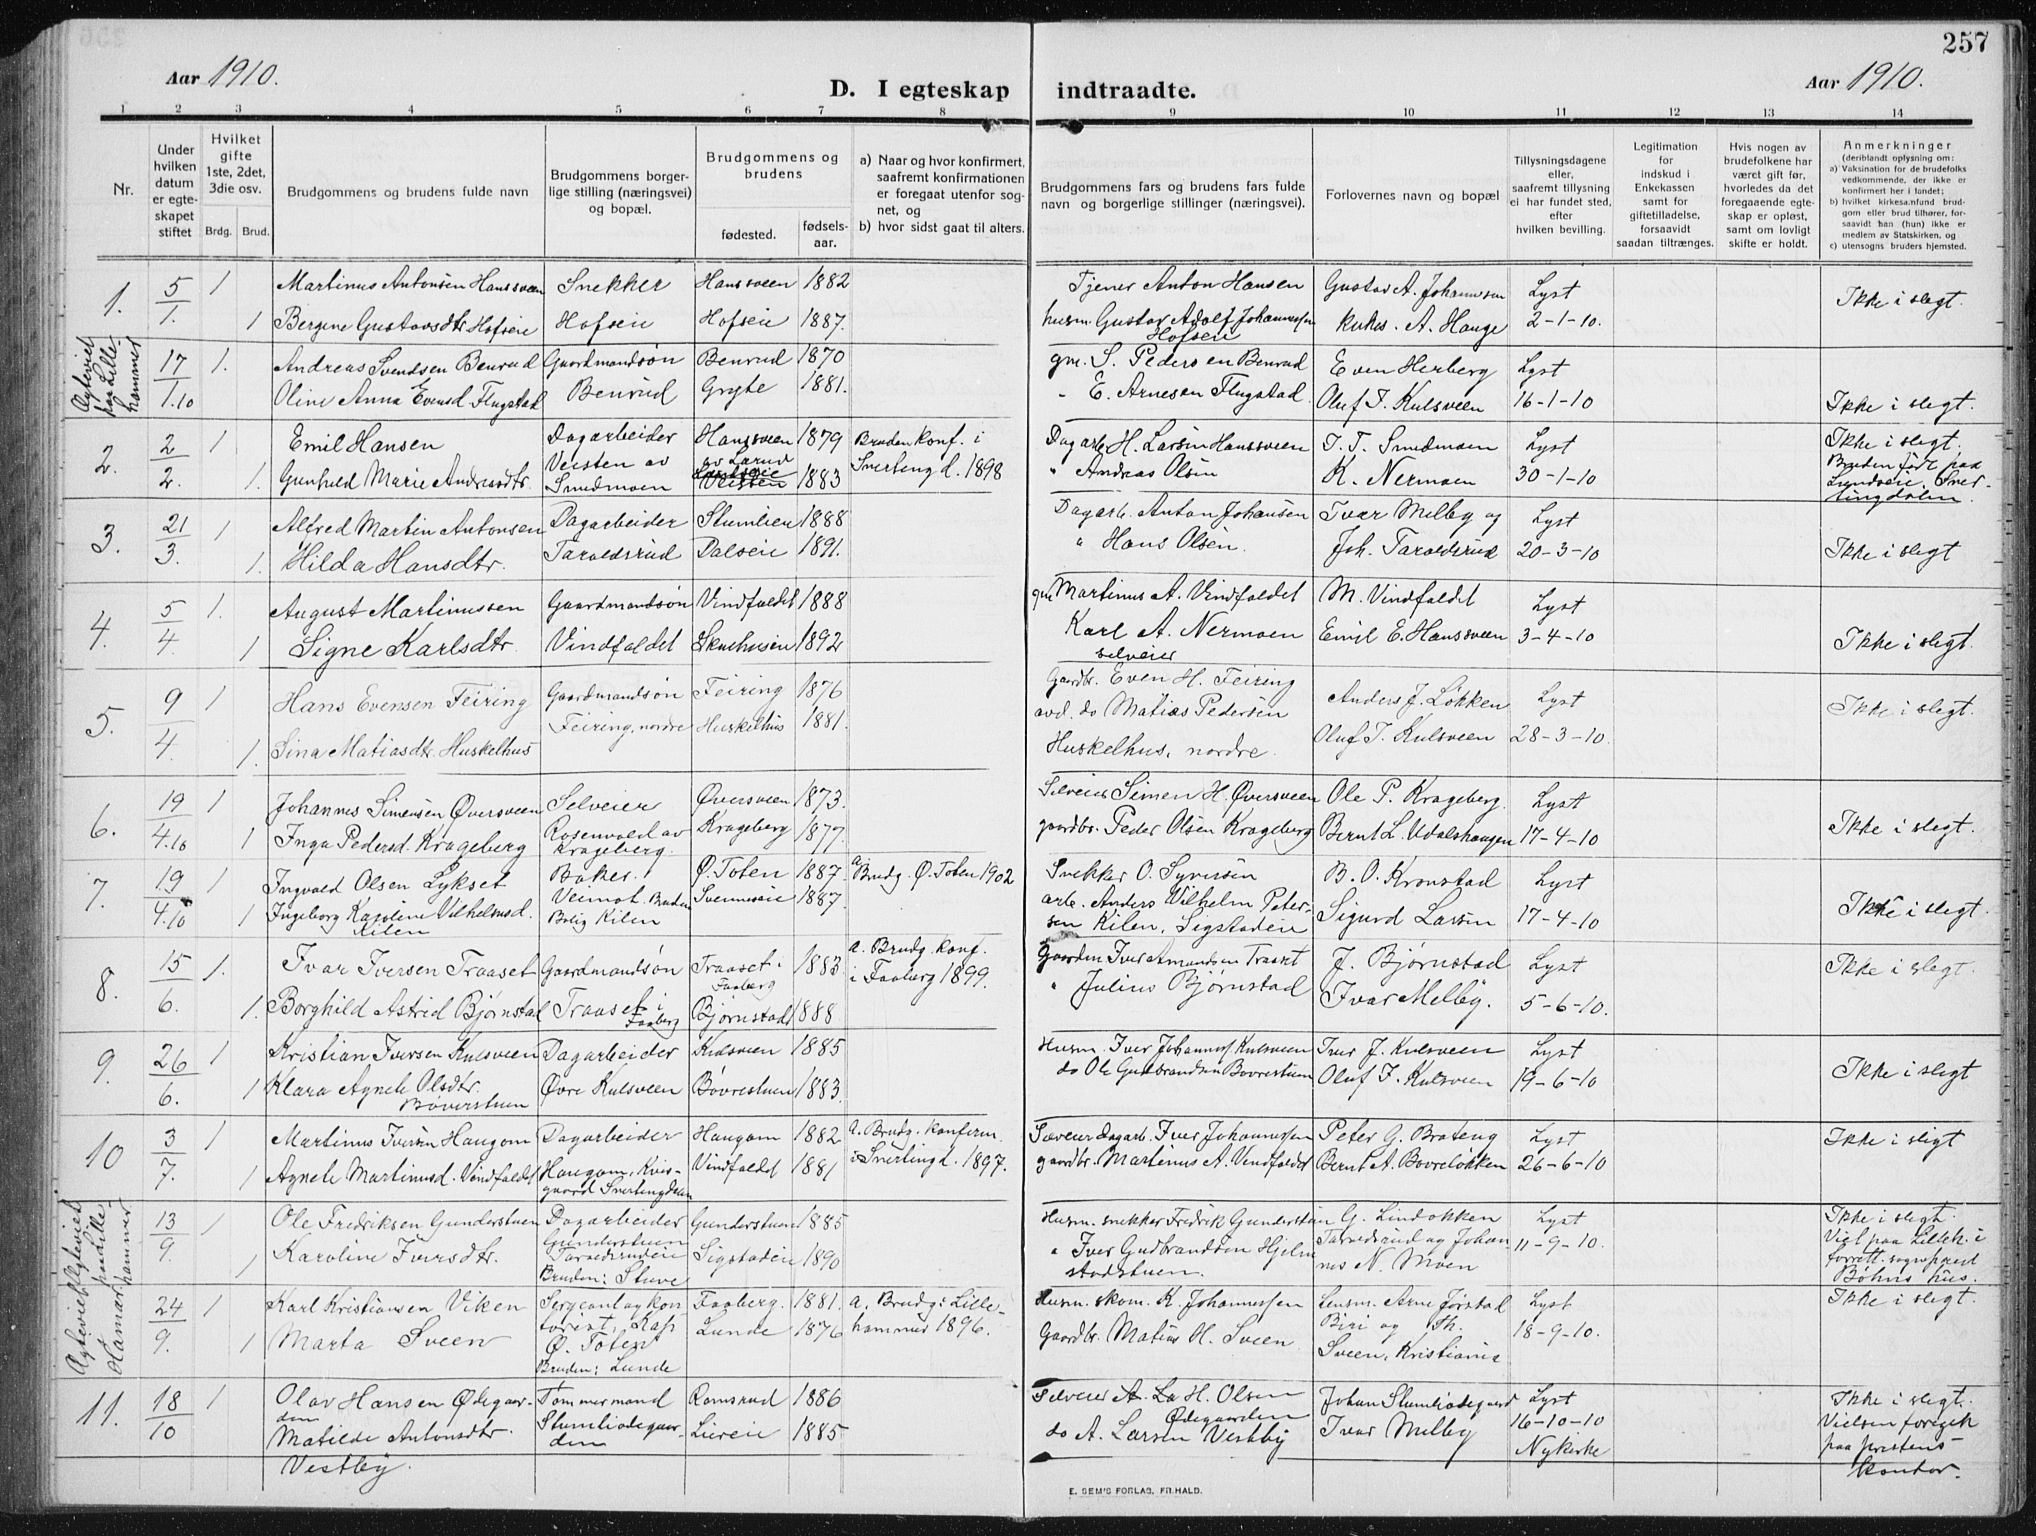 257
Aar 1910.
D. I egteskap indtraadte.
Aar 1910.
1 2 3 4 5 6 7 8 9 10 11 12 13 14
Nr.
Under hvilken datum er egteskapet stiftet
Hvilket gifte 1ste, 2det, 3die osv.
Brdg. Brud.
Brudgommens og brudens fulde navn
Brudgommens borgerlige stilling (næringsvei) og bopæl.
Brudgommens og brudens
fødested.
fødselsaar.
a) Naar og hvor konfirmert, saafremt konfirmationen er foregaat utenfor sognet, og
b) hvor sidst gaat til alters.
Brudgommens fars og brudens fars fulde navn og borgerlige stillinger (næringsvei).
Forlovernes navn og bopæl
Tillysningsdagene eller, saafremt tillysning ei har fundet sted, efter hvilken bevilling.
Legitimation for indskud i Enkekassen samt for giftetilladelse, forsaavidt saadan tiltrænges.
Hvis nogen av brudefolkene har været gift før, hvorledes da det foregaaende egteskap er opløst, samt om lovligt skifte er holdt.
Anmerkninger
(deriblandt oplysning om:
a) Vaksination for de brudefolks vedkommende, der ikke er konfirmert her i landet;
b) hvilket kirkesamfund brudgom eller brud tilhører, forsaavidt han (hun) ikke er medlem av Statskirken, og
c) utensogns bruders hjemsted.
1. 5/1. 1 Martinus Antonsen Hanssveen Snekker Hanssveen 1882 Tjener Anton Hansen Gustav A. Johannsen Lyst Ikke i slegt.
1 Bergine Gustavsdtr. Hofseie Hofseie Hofseie 1887. husm. Gustav Adolf Johannessen Hofseie A. Hauge 2-1-10.
17/1.10 1. Andreas Svendsen Benrud Gaardmandsøn Benrud 1870 gm. S. Pedersen Benrud Even Herberg Lyst
Oline Anna Evensd. Flugstad Benrud Gryte 1881. " E. Arnesen Flugstad Oluf J. Kulsveen 16-1-10 Ikke i slegt.
2. 2/2. 1 Emil Hansen Dagarbeider Hanssveen 1879 Bruden konf. i Dagarb. H. Larsen Hanssveen Lyst Ikke i slegt.
1. Gunhild Marie Andreasdtr. Veisten av Smedmoen 1883 Snertingd. 1898 " Andreas Olsen K. Nermoen 30-1-10 Bruden født paa
3. 21/3. 1 Alfred Martin Antonsen Dagarbeider Stumlien 1888 Dagarb. Anton Johansen Ivar Melby og Lyst
1. Hilda Hansdtr. Taraldsrud Dalseie 1891. " Hans Olsen. Joh. Taraldsrud 20-3-10 Ikke i slegt
4. 5/4. 1. August Martinussen Gaardmandsøn Vindfaldet 1888 gm Martinus A. Vindfaldet M. Vindfaldet Lyst
1 Signe Karlsdtr. Vindfaldet Skuehusen 1892 Karl A. Nermoen selveier Emil E. Hanssveen 3-4-10 Ikke i slegt.
5. 9/4. 1 Hans Evensen Feiring Gaardmandsøn Feiring 1876 Gaardbr. Even H. Feiring Anders J. Løkken Lyst Ikke i slegt.
1. Sina Matiasdtr. Huskelhus Feiring, nordre Huskelhus 1881. avd. do Matias Pedersen Huskelhus, nordre. Oluf J. Kulsveen 28-3-10.
6. 19/4.10 1 Johannes Simensen Øversveen Selveier Øversveen 1873. Selveier Simen H. Øversveen Ole P. Krageberg. Lyst
1 Inga Pedersd. Krageberg Rosenvold av Krageberg. Krageberg 1877. gaardbr. Peder Olsen Krageberg Bernt L. 17-4-10 Ikke i slegt.
7. 19/4.10 1 Ingvald Olsen Lykset Baker. Ø. Toten 1887. a. Brudg. Ø. Toten 1902 Snekker O. Syversen B. O. Kronstad Lyst
1 Ingeborg Karoline Vilhelmsd. Kilen Veimot. Bruden Bolig Kilen Svenneseie 1887. arb. Anders Vilhelm Petersen Kilen, Sigstadeie Sigurd Larsen 17-4-10 Ikke i slegt.
8. 15/6. 1. Ivar Iversen Traaset Gaardmandsøn Traaset i Faaberg 1883 a. Brudg. konf. i Faaberg 1899. Gaardm Iver Amundsen Traaset J. Bjørnstad Lyst Ikke i slegt
1. Borghild Astrid Bjørnstad Traaset i Faaberg Bjørnstad 1888 " Julius Bjørnstad Ivar Melby. 5-6-10.
9. 26/6. 1 Kristian Iversen Kulsveen Dagarbeider Kulsveen 1885 Husm. Iver Johanness. Kulsveen Iver J. Kulsveen Lyst
1 Klara Agnete Olsdtr. Bøverstuen Øvre Kulsveen Bøvrestuen 1883. do Ole Gudbrandsen Bøvrestuen Oluf J. Kulsveen 19-6-10 Ikke i slegt
10 3/7. 1 Martinus Iversen Haugom Dagarbeider Haugom 1882 a. Brudg. konferm. Iver Johannessen Peter G. Brateng Lyst Ikke i slegt
1 Agnete Martinusd. Vindfaldet Haugom, Kvisgaard Snertingdalen Vindfaldet 1881 i Snertingd. 1897. gaardbr. Martinus A. Vindfaldet Bernt A. Bøvreløkken 26-6-10
13/9. 1 Ole Fredriksen Gunderstuen Dagarbeider Gunderstuen 1885 Husm. snekker Fredrik Gunderstuen G. Lindløkken Lyst Ikke i slegt.
1 Karoline Iversdtr. Taraldsrudeie Bruden: Stuve Sigstadeie 1890 " Iver Gudbrandsen Hjelmstadstuen. Taraldsrud og Johannes N. Moen 11-9-10. Viet paa Lilleh. i
Bøhns hus.
24/9. 1 Karl Kristiansen Viken Faaberg. 1881. a. Brudg: Lillehammer 1896. Husm. skom. K. Johannessen Lensm. Arne Jørstad Lyst Ikke i slegt.
1 Marta Sveen Ø. Toten Bruden: Lunde Lunde 1876 Gaardbr. Matias H. Sveen Biri og Th. Sveen, Kristiania 18-9-10.
11. 18/10 1 Olav Hansen Ødegaarden Tømmermand Ramsrud 1886 Selveier H. Olsen Ødegaarden Johan Stumliødegaard Lyst Ikke i slegt.
Matilde Antonsdtr. Vestby. Stumliødegaarden Liereie 1885 do A. Larsen Vestby Ivar Melby 16-10-10 Nykirke Vielsen foregik paa prestens kontor.
E. SEM'S FORLAG, FR.HALD.